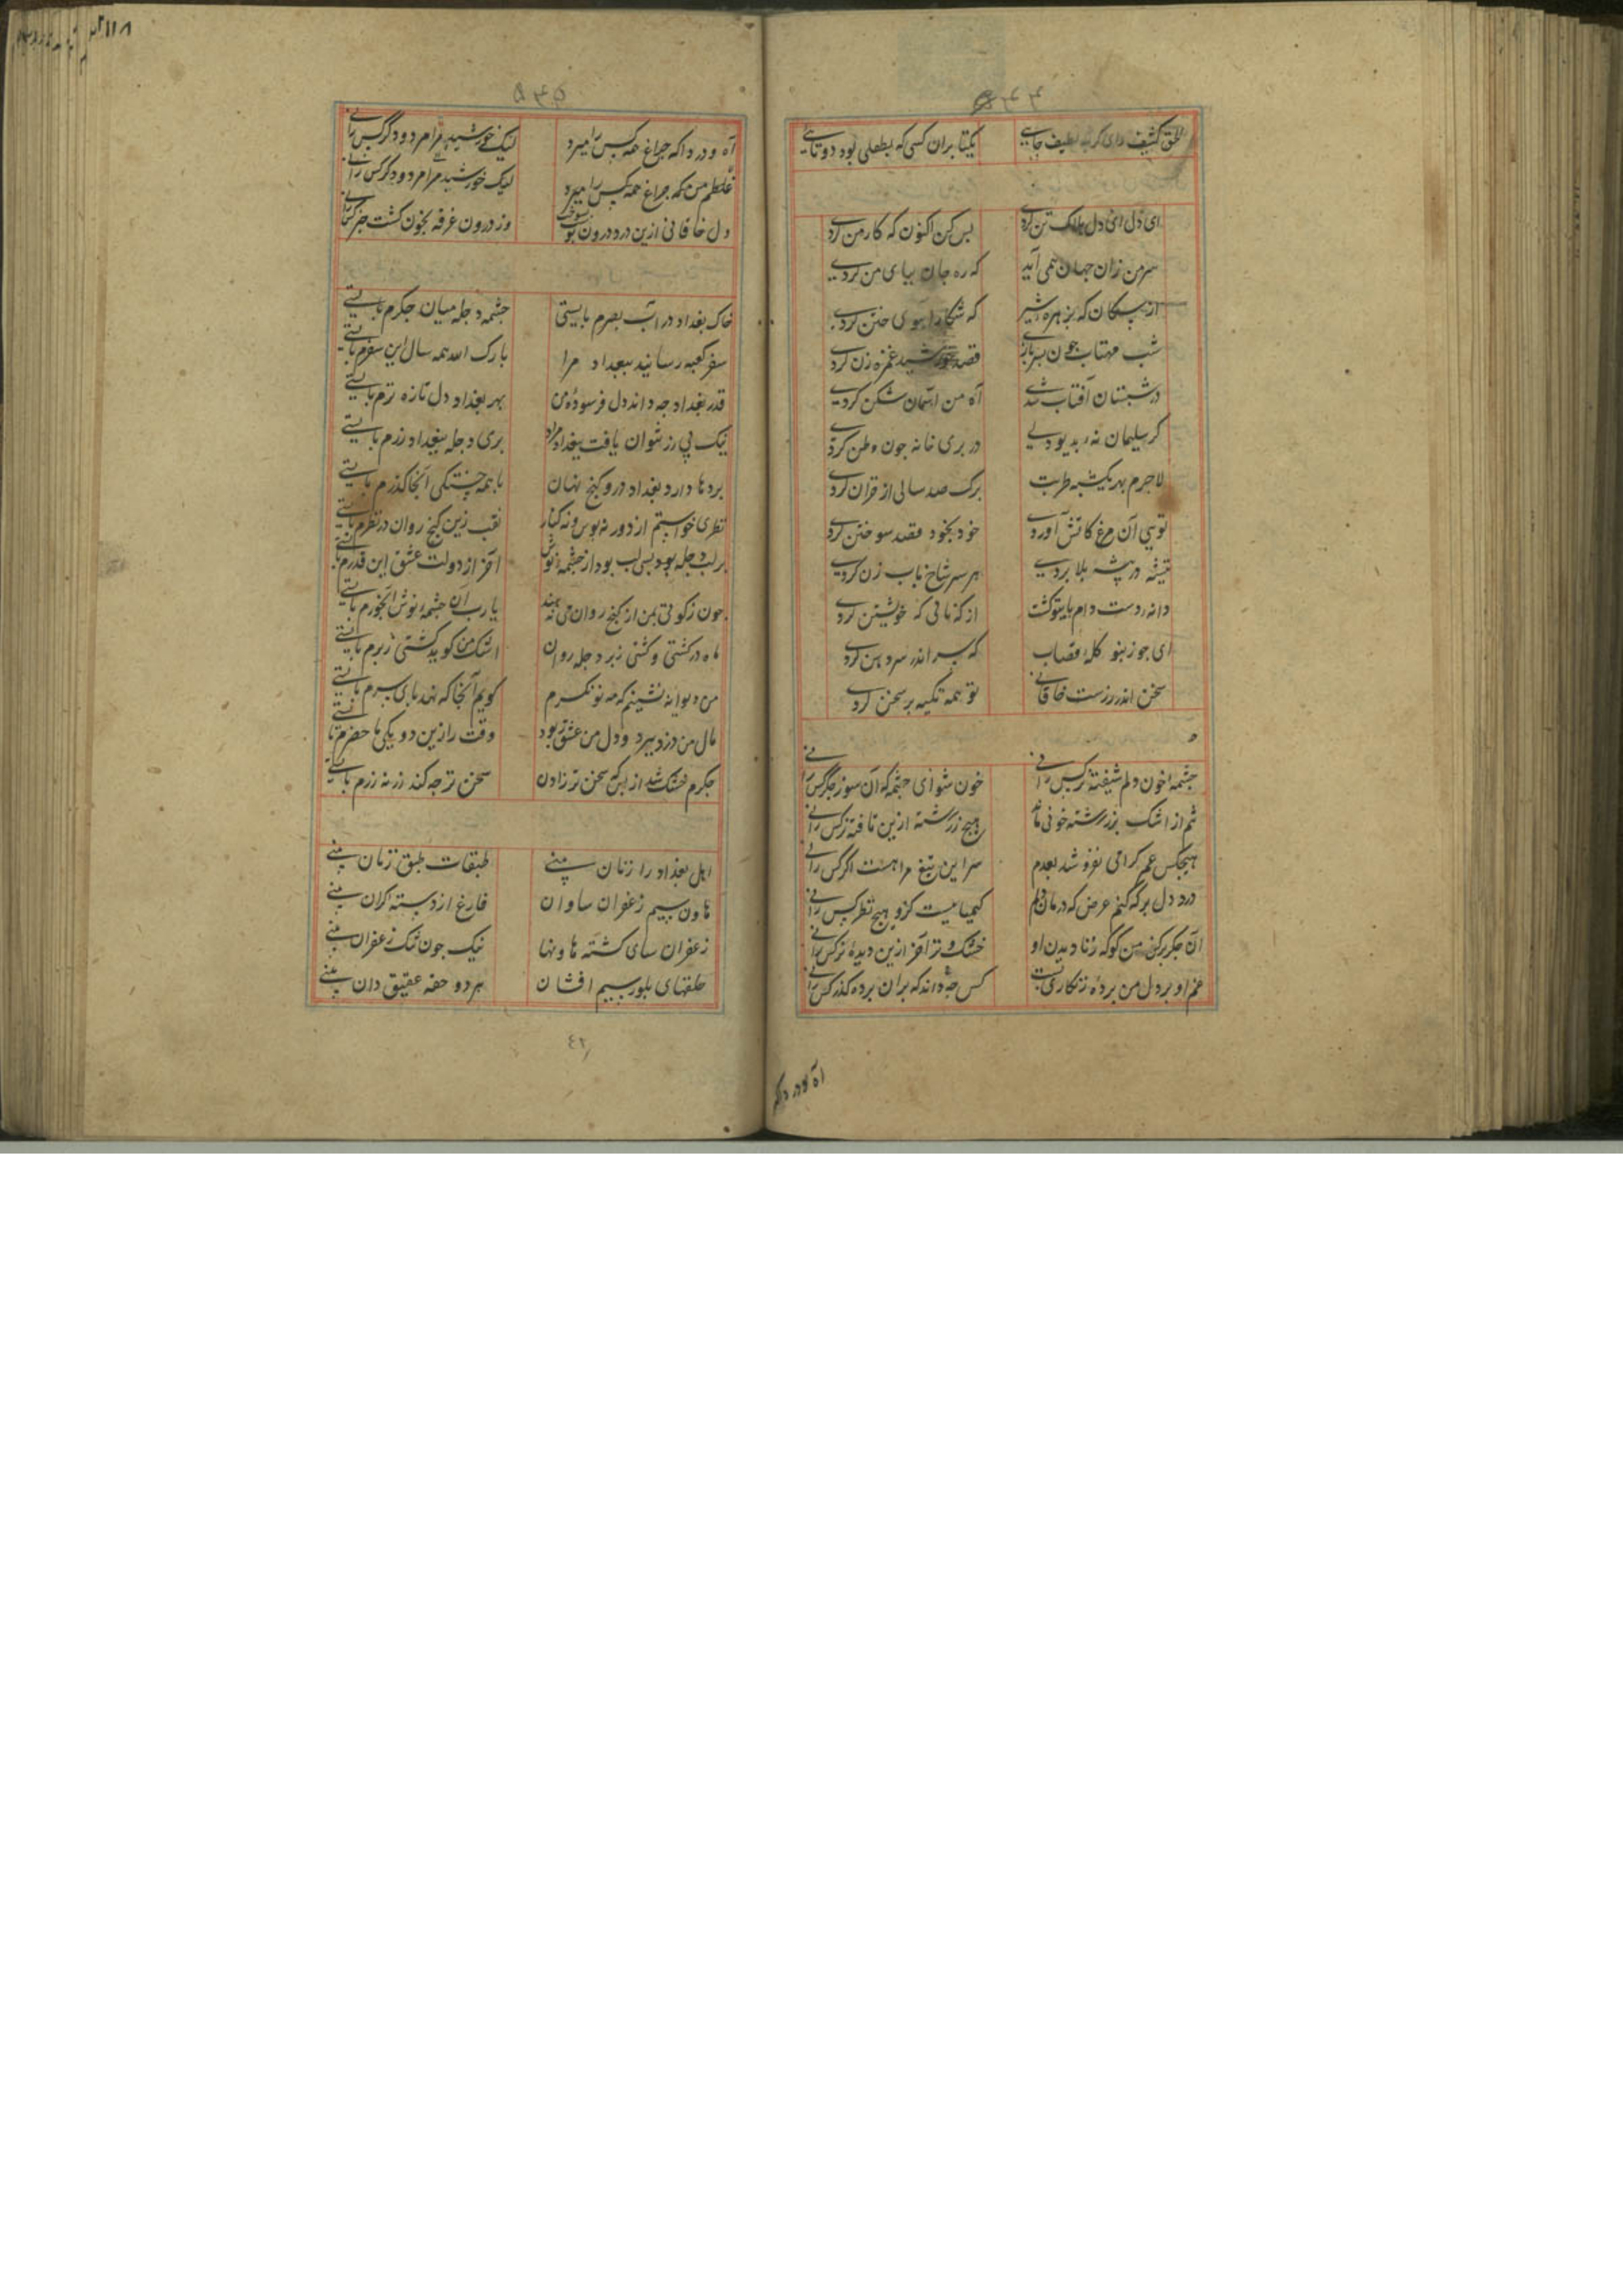 ۵۴۴
خلق کثیف لطیف جایی یکتا بران کسی که بطفلی بود دوتایی
ای دل ای دل هلاک تن کردی بس کن اکنون که کار من کردی
سر من زان جهان همی آید که ره جان بپای من کردی
از سکان که بزهره شیر که شکار آهوی ختن کردی
شب مهتاب چون بسر بازی قصد خورشید غمزه زن کردی
در شبستان آفتاب شدی آه من آسمان شکن کردی
کر سلیمان نه بدیو دلی در پری خانه چون وطن کردی
لاجرم بهر یکشبه طربت برک صد سالی از قران کردی
تویی آن مرغ کآتش آوردی خود بخود قصد سوختن کردی
تیشه در بیشه بلا بردی هر سر شاخ باب زن کردی
دانه دست دام پایتو کشت از که نالی که خویشتن کردی
ای جو زنبور کلهٔ قصاب که سر اندر سر دهن کردی
سخن اندر زرست خاقانی تو همه تکیه بر سخن کردی
چشمه خون دلم شیفته ترکس رانی خون شو ای چشم که آن سوز جگر کس رانی
نم از اشک بزر رشته خونی ماند هیچ زر رشته ازین تافته تر کس رانی
هیچکس عمر کرامی نفروشد بعدم سر این تیغ مرا هست اکر کس رانی
درد دل بر که کنم عرض که درمان دلم کیمیاییست کزو هیچ نظر کس رانی
آن جکر تر کن من کو که ز نادیدن او خشک و تر آخر ازین دیده تر کس رانی
غم او بر دل من پردهٔ زنکاری بست کس چه داند که بران پرده کذر کس رانی
آه و دردا که
۵۴۵
آه و دردا که چراغ همه کس را میرد لیک خورشید مرا مرد و دکر کس رانی
غلطم من که چراغ همه کس را میرد لیک خورشید مرا مرد و دکر کس رانی
دل خاقانی ازین درد درون پوست بسوخت وز درون غرقه بخون کشت خبر کس رانی
خاک بغداد در آب بصرم بایستی چشمه دجله میان جکرم بایستی
سفر کعبه رسانید ببغداد مرا بارک الله همه سال این سفرم بایستی
قدر بغداد چه داند دل فرسودهٔ من بهر بغداد دل تازه ترم بایستی
نیک بی زر نتوان یافت ببغداد مراد پری دجله ببغداد زرم بایستی
پردها دارد بغداد درو کنج نهان با همه خستکی آنجا کذرم بایستی
نظری خواستم از دور نه بوس و نه کنار نقب زین کنج روان در نظرم بایستی
بر لب دجله بود بس لب بود از چشمه نوش آخر از دولت عشق این قدرم بایستی
چون زکوتی بمن از کنج روان می ندهند یا رب آن چشمهٔ نوش آبخورم بایستی
ماه در کشتی و کشتی زبر دجله روان اشک من کوید کشتی زبرم بایستی
من دیوانه نشینم که مه نو نکرم کویم آنجا که نهد پای سرم بایستی
مال من دزد ببرد و دل من عشق ربود وقت را زین دو یکی ما حضرم بایستی
جکرم خشک شد از بس که سخن تر زادن سخن تر چه کند زر نه زرم بایستی
اهل بغداد را زنان بینی طبقات طبق زنان بینی
هاون سیم زعفران ساوان فارغ از دسته کران بینی
زعفران سای کشته هاونها نیک چون تنک زعفران بینی
حلقهای بلور سیم افشان هر دو حقه عقیق دان بینی